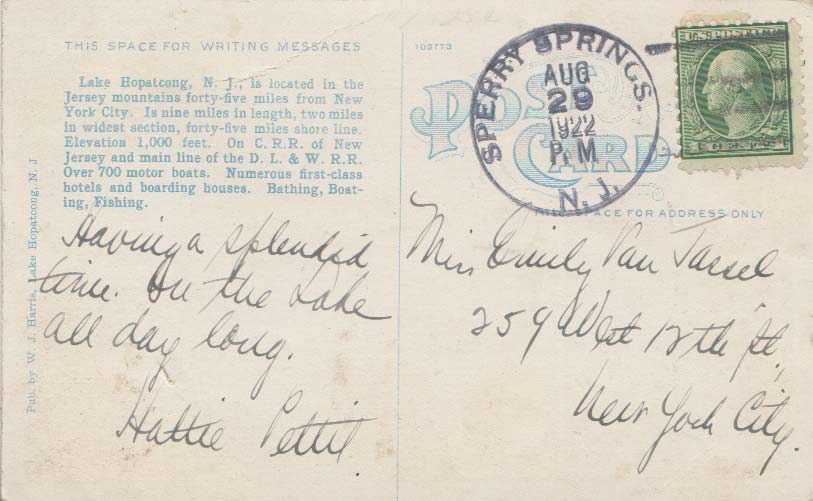 THIS SPACE FOR WRITING MESSAGES
Lake Hopatcong, N. J., is located in the
Jersey mountains forty-five miles from New
York City. Is nine miles in length, two miles
in widest section, forty-five miles shore line.
Elevation 1,000 feet. On C. R. R. of New
Jersey and main line of the D. L. & W. R. R.
Over 700 motor boats. Numerous first-class
hotels and boarding houses. Bathing, Boat-
ing, Fishing.
Pub. by W. J. Harris, Lake Hopatcong, N. J
Having a splendid
time. On the Lake
all day long.
Hattie Pettit.
103773
POST
CARD
SPERRY SPRINGS.
AUG
29
1922
P. M
N. J.
THIS SPACE FOR ADDRESS ONLY
Miss Emily Van Tassel
259 West 12th St.,
New York City.